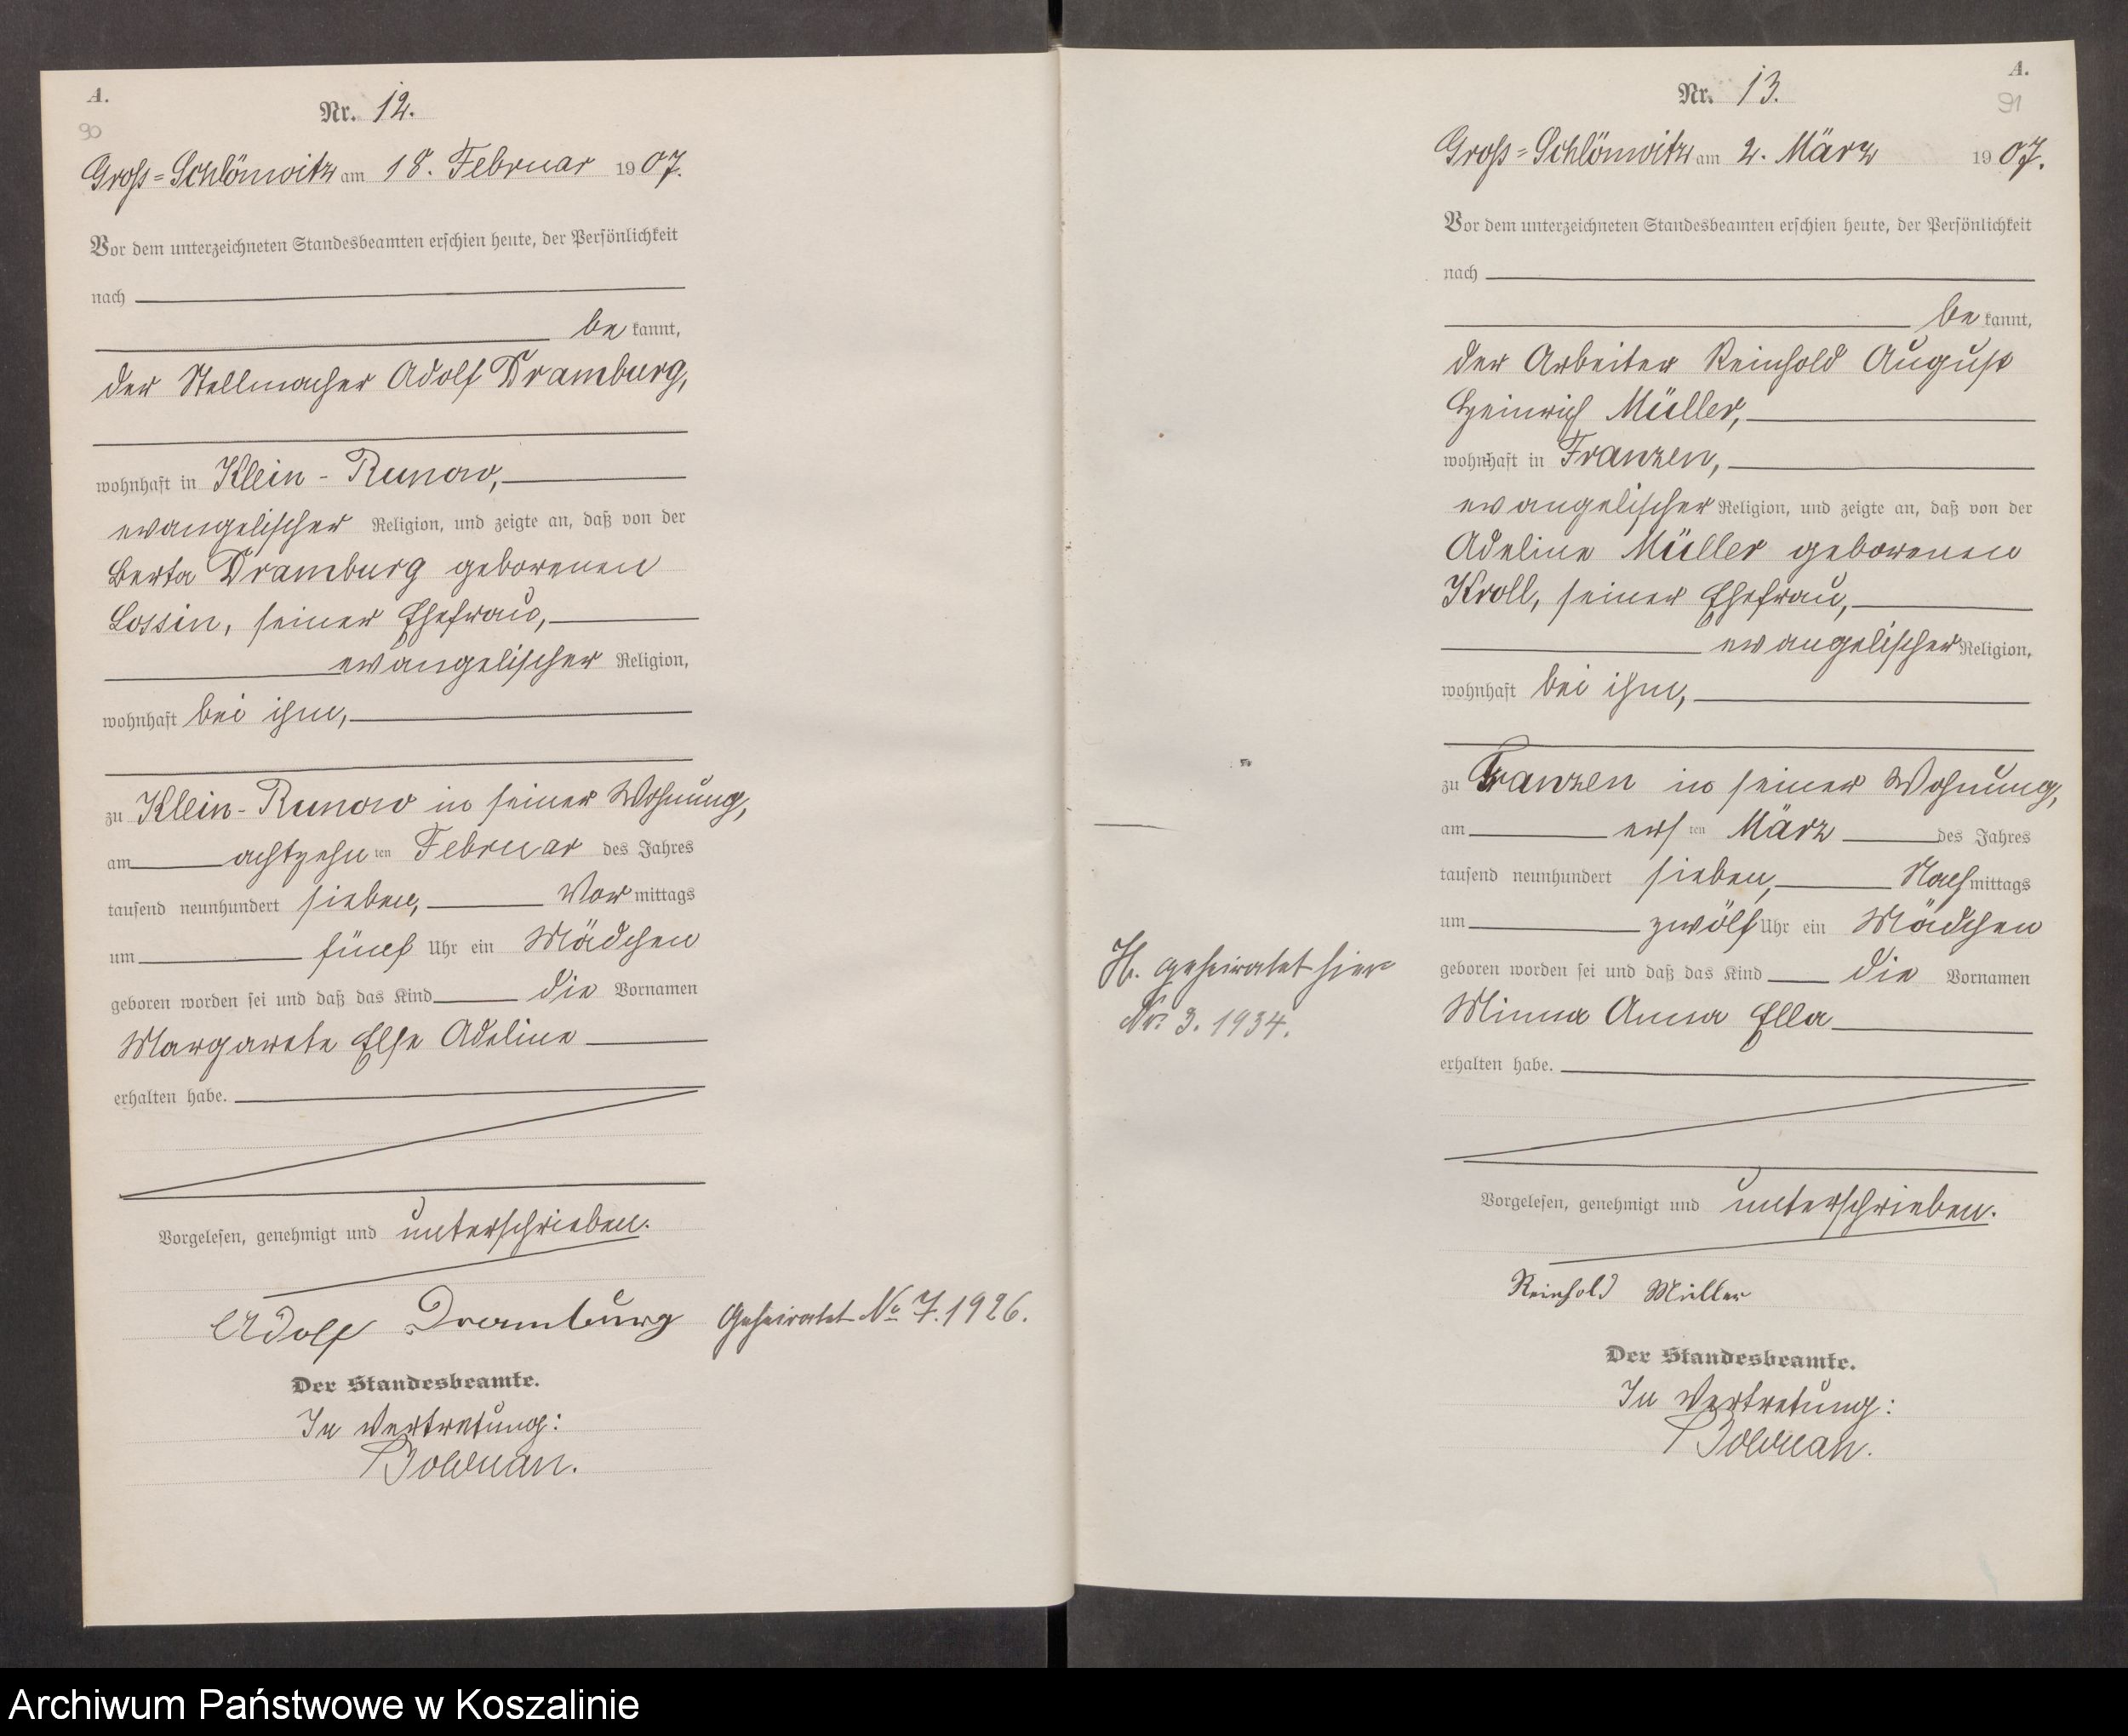 A.
90
Nr. 12.
Gross=Schlönwitz am 18. Februar 1907.
Vor dem unterzeichneten Standesbeamten erschien heute, der Persönlichkeit
nach
be kannt,
der Stellmacher Adolf Dramburg,
wohnhaft in Klein-Runow,
evangelischer Religion, und zeigte an, daß von der
Berta Dramburg geborenen
Lossin, seiner Ehefrau,
evangelischer Religion,
wohnhaft bei ihm,
zu Klein-Runow in seiner Wohnung,
am achtzehn ten Februar des Jahres
tausend neunhundert sieben, Vor mittags
um fünf Uhr ein Mädchen
geboren worden sei und daß das Kind die Vornamen
Margarete Else Adeline
erhalten habe.
Vorgelesen, genehmigt und unterschrieben.
Adolf Dramburg
Geheiratet No 7. 1926.
Der Standesbeamte.
In Vertretung:
A.
91
Nr. 13.
Gross=Schlönwitz am 2. März 1907.
Vor dem unterzeichneten Standesbeamten erschien heute, der Persönlichkeit
nach
be kannt,
der Arbeiter Reinhold August
Heinrich Müller,
wohnhaft in Franzen,
evangelischer Religion, und zeigte an, daß von der
Adeline Müller geborenen
Kroll, seiner Ehefrau,
evangelischer Religion,
wohnhaft bei ihm,
zu Franzen in seiner Wohnung,
am ers ten März des Jahres
tausend neunhundert sieben, Nach mittags
um zwölf Uhr ein Mädchen
geboren worden sei und daß das Kind die Vornamen
Minna Anna Ella
erhalten habe.
geheiratet hier
Nr. 3. 1934.
Vorgelesen, genehmigt und unterschrieben.
Reinhold Müller
Der Standesbeamte.
In Vertretung:
Archiwum Państwowe w Koszalinie